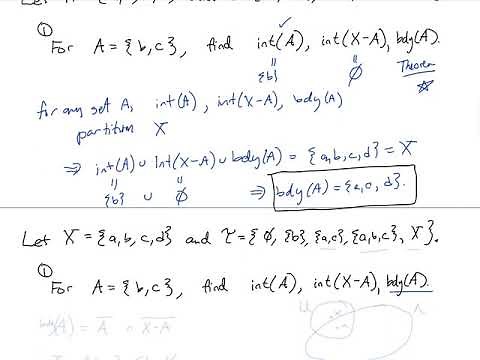 ①
For A = {b,c}, find int(A)✓, int(X-A), bdy(A).
= {b} = ∅ Theorem ☆
for any set A, int(A), int(X-A), bdy(A)
partition X
⇒ int(A) ∪ Int(X-A) ∪ bdy(A) = {a,b,c,d} = X
= {b} ∪ = ∅ ⇒ bdy(A) = {a,c,d}.
Let X = {a,b,c,d} and τ = {∅, {b}, {a,c}, {a,b,c}, X}.
①
For A = {b,c}, find int(A), int(X-A), bdy(A).
bdy(A) = A̅ ∩ X-A̅